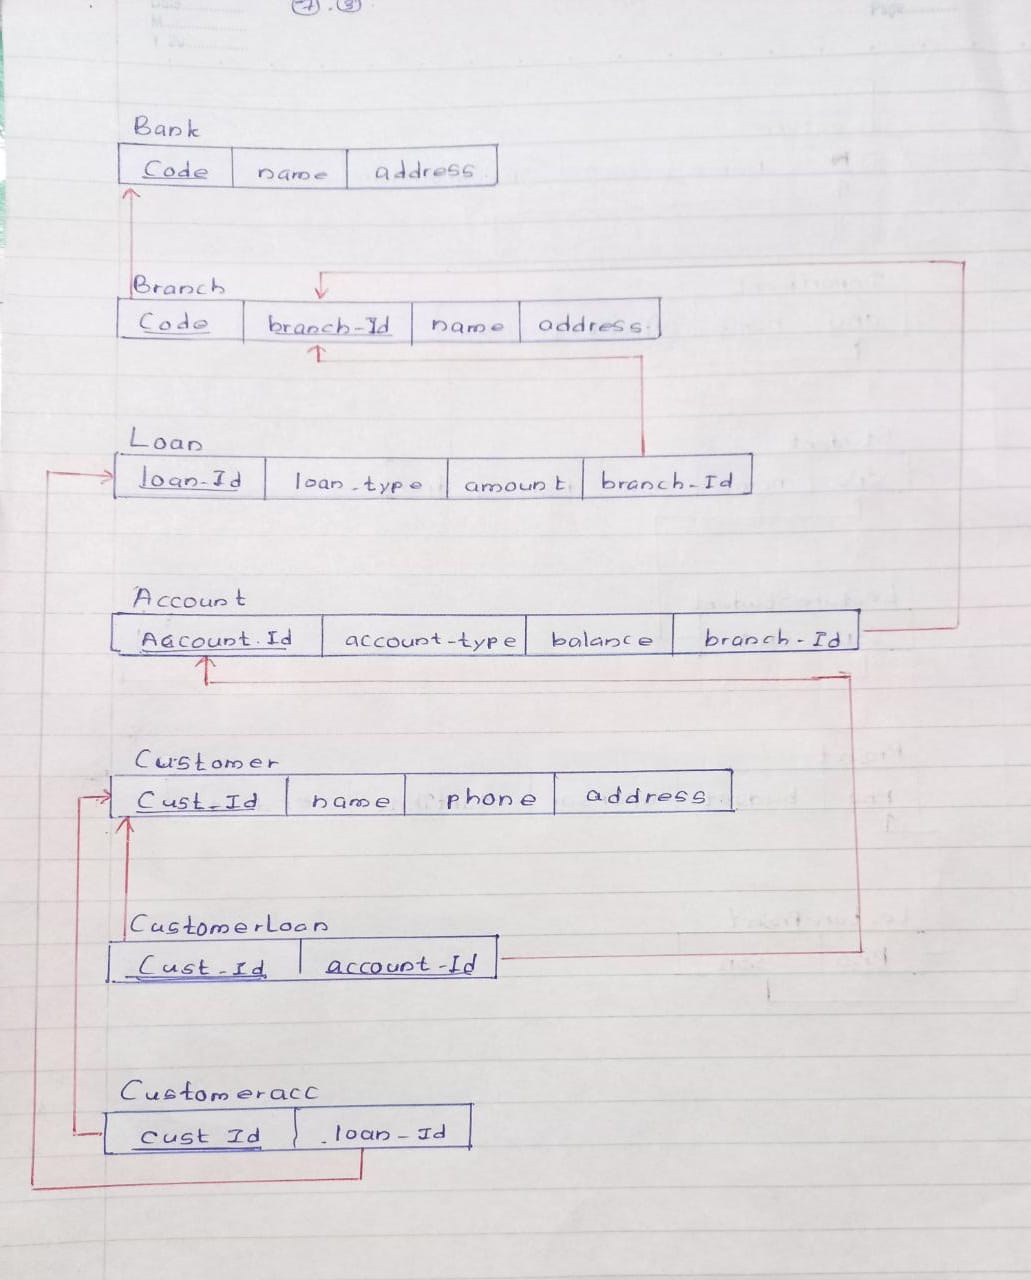 7.3
Bank
Code name address
Branch
Code branch-Id name address
Loan
loan-Id loan-type amount branch-Id
Account
Account.Id account-type balance branch-Id
Customer
Cust-Id name phone address
CustomerLoan
Cust-Id account-Id
Customeracc
Cust Id loan-Id